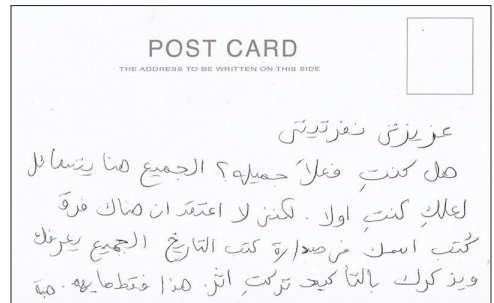 POST CARD
THE ADDRESS TO BE WRITTEN ON THIS SIDE
عزيزتي نفرتيتي
هل كنتِ فعلاً جميله؟ الجميع هنا يتسائل
لعلكِ كنتِ اولا . لكنني لا اعتقد ان هناك فرق
كُتب اسمك في صدارة كتب التاريخ الجميع يعرفك
ويذكرك بالتاكيد تركتِ اثر. هذا فقط